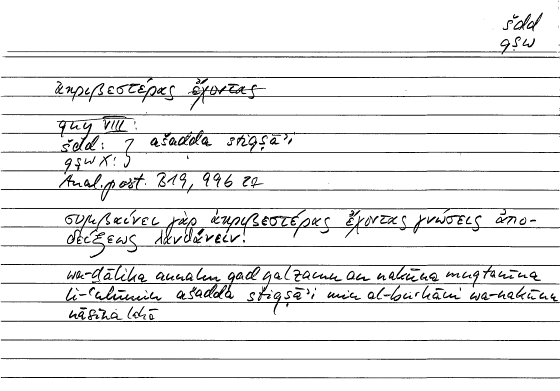 šdd
qṣw
ἀκριβεστέρας ἔχοντας
qny VIII:
šdd: } ašadda stiqṣāʾi
qṣw X: }
Anal. post. B19, 99b 27
συμβαίνει γὰρ ἀκριβεστέρας ἔχοντας γνώσεις ἀπο-
δείξεως λανθάνειν:
wa-ḏālika annahu qad yalzamu an nakūna muqtanīna
li-ʿulūmin ašadda stiqṣāʾi min al-burhāni wa-nakūna
nāsīna lahā